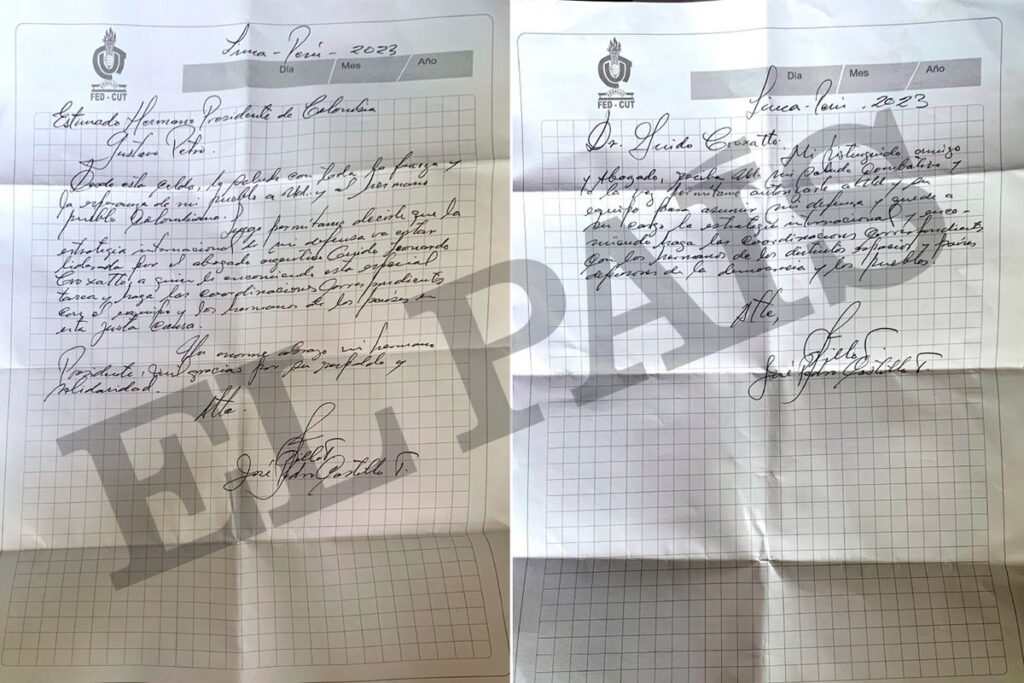 FED - CUT
Lima - Perú - 2023
Día Mes Año
Estimado Hermano Presidente de Colombia
Gustavo Petro.
Desde esta celda, le saludo con toda la fuerza y
la esperanza de mi pueblo a Ud. y al hermano
pueblo Colombiano.
Luego permítame decirle que la
estrategia internacional de mi defensa va estar
liderada por el abogado argentino Guido Leonardo
Croxatto, a quien le encomiendo esta especial
tarea y haga las coordinaciones Correspondientes
con el equipo y los hermanos de los países en
esta justa causa.
Un enorme abrazo mi hermano
Presidente, mil gracias por su respaldo y
solidaridad.
Atte.
José Pedro Castillo T.
FED - CUT
Día Mes Año
Lima - Perú - 2023
Dr. Guido Croxatto.
Mi distinguido amigo
y Abogado, reciba Ud. mi saludo Combativo y
a la vez permítame autorizarle a Ud y su
equipo para asumir mi defensa y quede a
su cargo la estrategia internacional y enco-
miendo haga las Coordinaciones Correspondientes
con los hermanos de los distintos espacios y países
defensores de la democracia y los pueblos.
Atte,
José Pedro Castillo T.
EL PAÍS